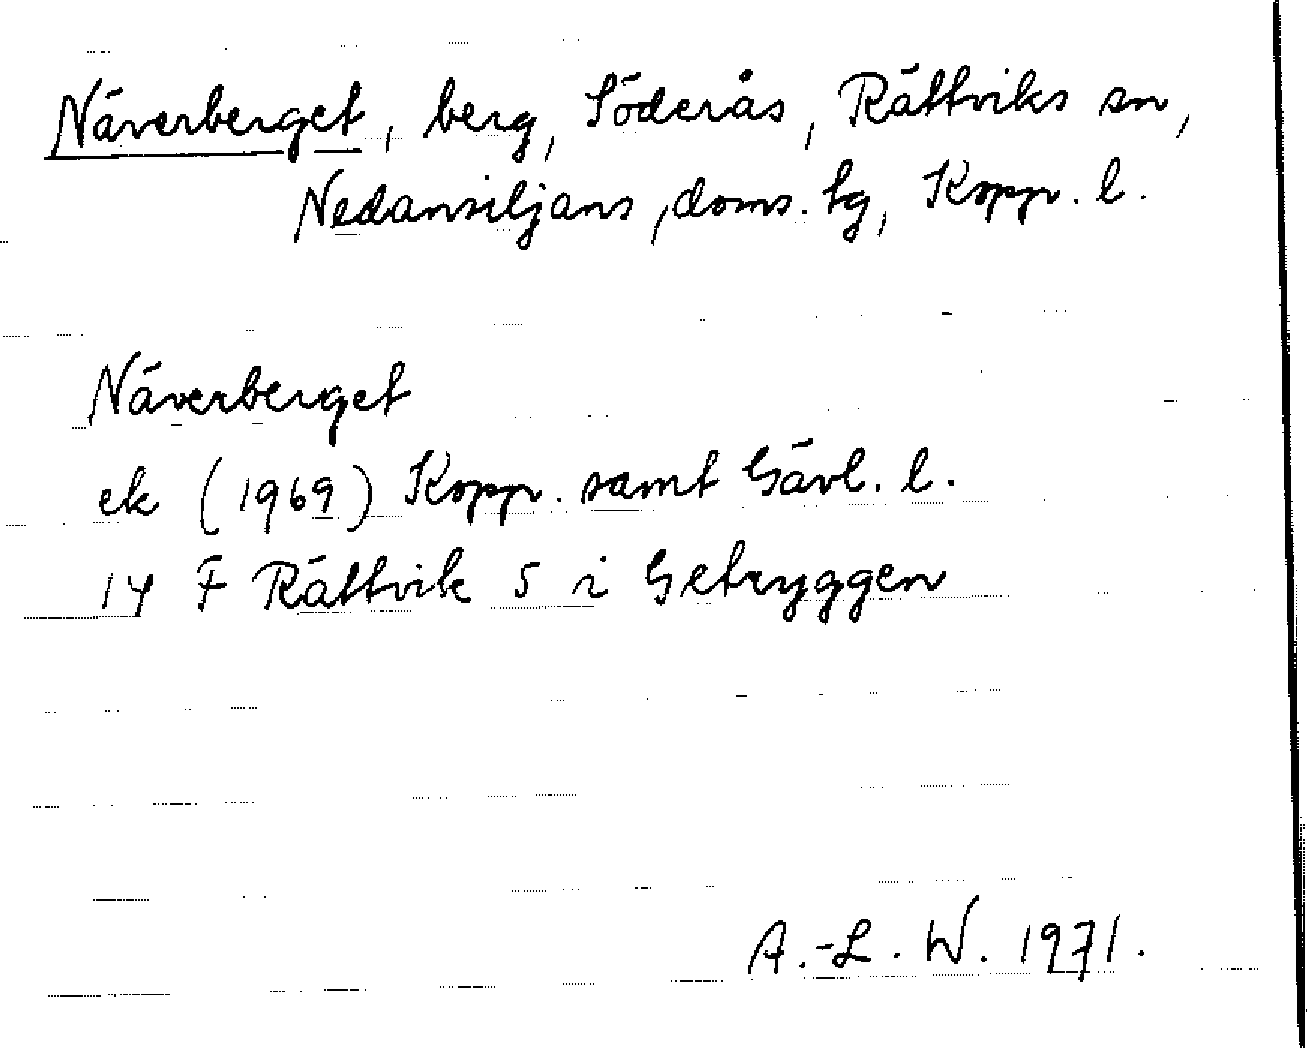 Näverberget, berg, Söderås, Rättviks sn,
Nedansiljans, doms. tg, Kopp. l.
Näverberget
ek (1969) Kopp. samt Gävl. l.
14 F Rättvik 5 i Getryggen
A.-L. W. 1971.